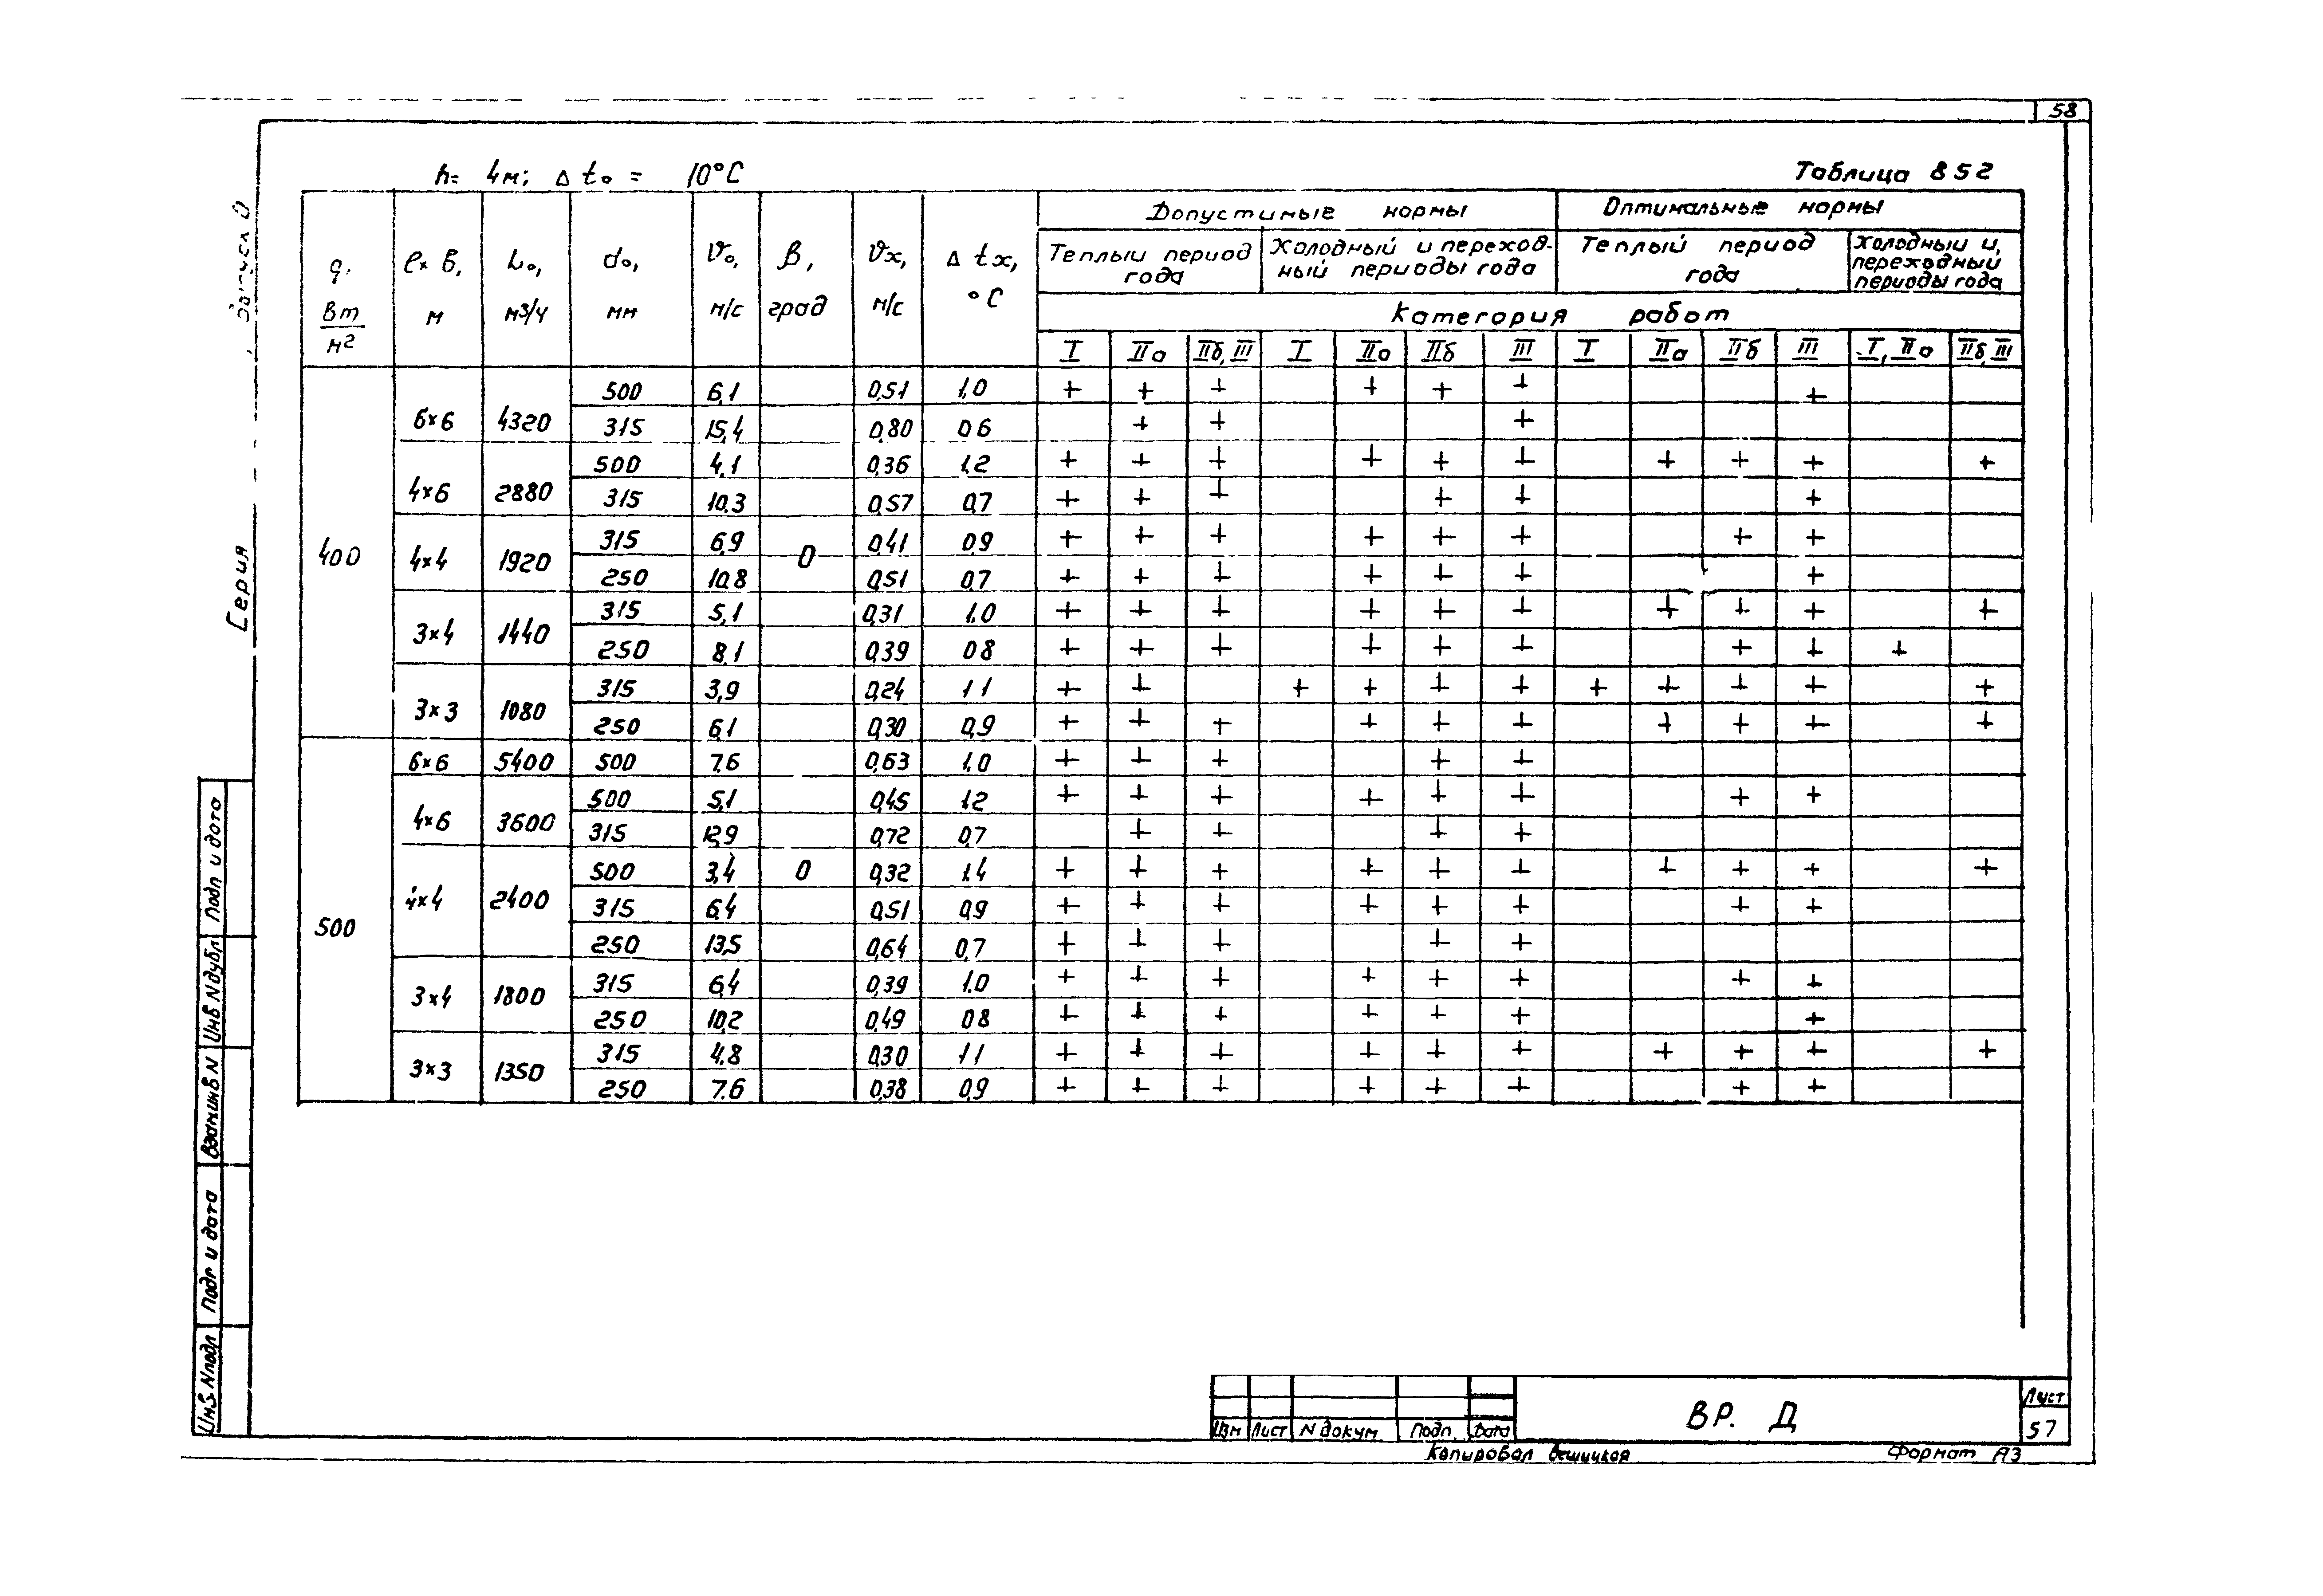 58
h= 4м; Δ to = 10°С
Таблица 852
q, Вт/м2 | l×в, м | Lo, м3/ч | do, мм | υo, м/с | β, град | υx, м/с | Δ tx, °С | Допустимые нормы | Оптимальные нормы
Теплый период года | Холодный и переходный периоды года | Теплый период года | Холодный и, переходный периоды года
Категория работ
I | IIа | IIб, III | I | IIа | IIб | III | I | IIа | IIб | III | I, IIа | IIб, III
400 | 6×6 | 4320 | 500 | 6,1 | 0 | 0,51 | 1,0 | + | + | + | | + | + | + | | | | + | |
315 | 15,4 | 0,80 | 0,6 | | + | + | | | | + | | | | | |
4×6 | 2880 | 500 | 4,1 | 0,36 | 1,2 | + | + | + | | + | + | + | | + | + | + | | +
315 | 10,3 | 0,57 | 0,7 | + | + | + | | | + | + | | | | + | |
4×4 | 1920 | 315 | 6,9 | 0,41 | 0,9 | + | + | + | | + | + | + | | | + | + | |
250 | 10,8 | 0,51 | 0,7 | + | + | + | | + | + | + | | | | + | |
3×4 | 1440 | 315 | 5,1 | 0,31 | 1,0 | + | + | + | | + | + | + | | + | + | + | | +
250 | 8,1 | 0,39 | 0,8 | + | + | + | | + | + | + | | | + | + | + |
3×3 | 1080 | 315 | 3,9 | 0,24 | 1,1 | + | + | | + | + | + | + | + | + | + | + | | +
250 | 6,1 | 0,30 | 0,9 | + | + | + | | + | + | + | | + | + | + | | +
500 | 6×6 | 5400 | 500 | 7,6 | 0 | 0,63 | 1,0 | + | + | + | | | + | + | | | | | |
4×6 | 3600 | 500 | 5,1 | 0,45 | 1,2 | + | + | + | | + | + | + | | | + | + | |
315 | 12,9 | 0,72 | 0,7 | | + | + | | | + | + | | | | | |
4×4 | 2400 | 500 | 3,4 | 0,32 | 1,4 | + | + | + | | + | + | + | | + | + | + | | +
315 | 6,4 | 0,51 | 0,9 | + | + | + | | + | + | + | | | + | + | |
250 | 13,5 | 0,64 | 0,7 | + | + | + | | | + | + | | | | | |
3×4 | 1800 | 315 | 6,4 | 0,39 | 1,0 | + | + | + | | + | + | + | | | + | + | |
250 | 10,2 | 0,49 | 0,8 | + | + | + | | + | + | + | | | | + | |
3×3 | 1350 | 315 | 4,8 | 0,30 | 1,1 | + | + | + | | + | + | + | | + | + | + | | +
250 | 7,6 | 0,38 | 0,9 | + | + | + | | + | + | + | | | + | + | |
Серия
Выпуск 0
Инв. N подл
Подп и дата
Взам инв N
Инв N дубл
Подп и дата
Изм Лист N докум Подп. Дата
ВР. Д
Лист
57
Копировал
Формат А3